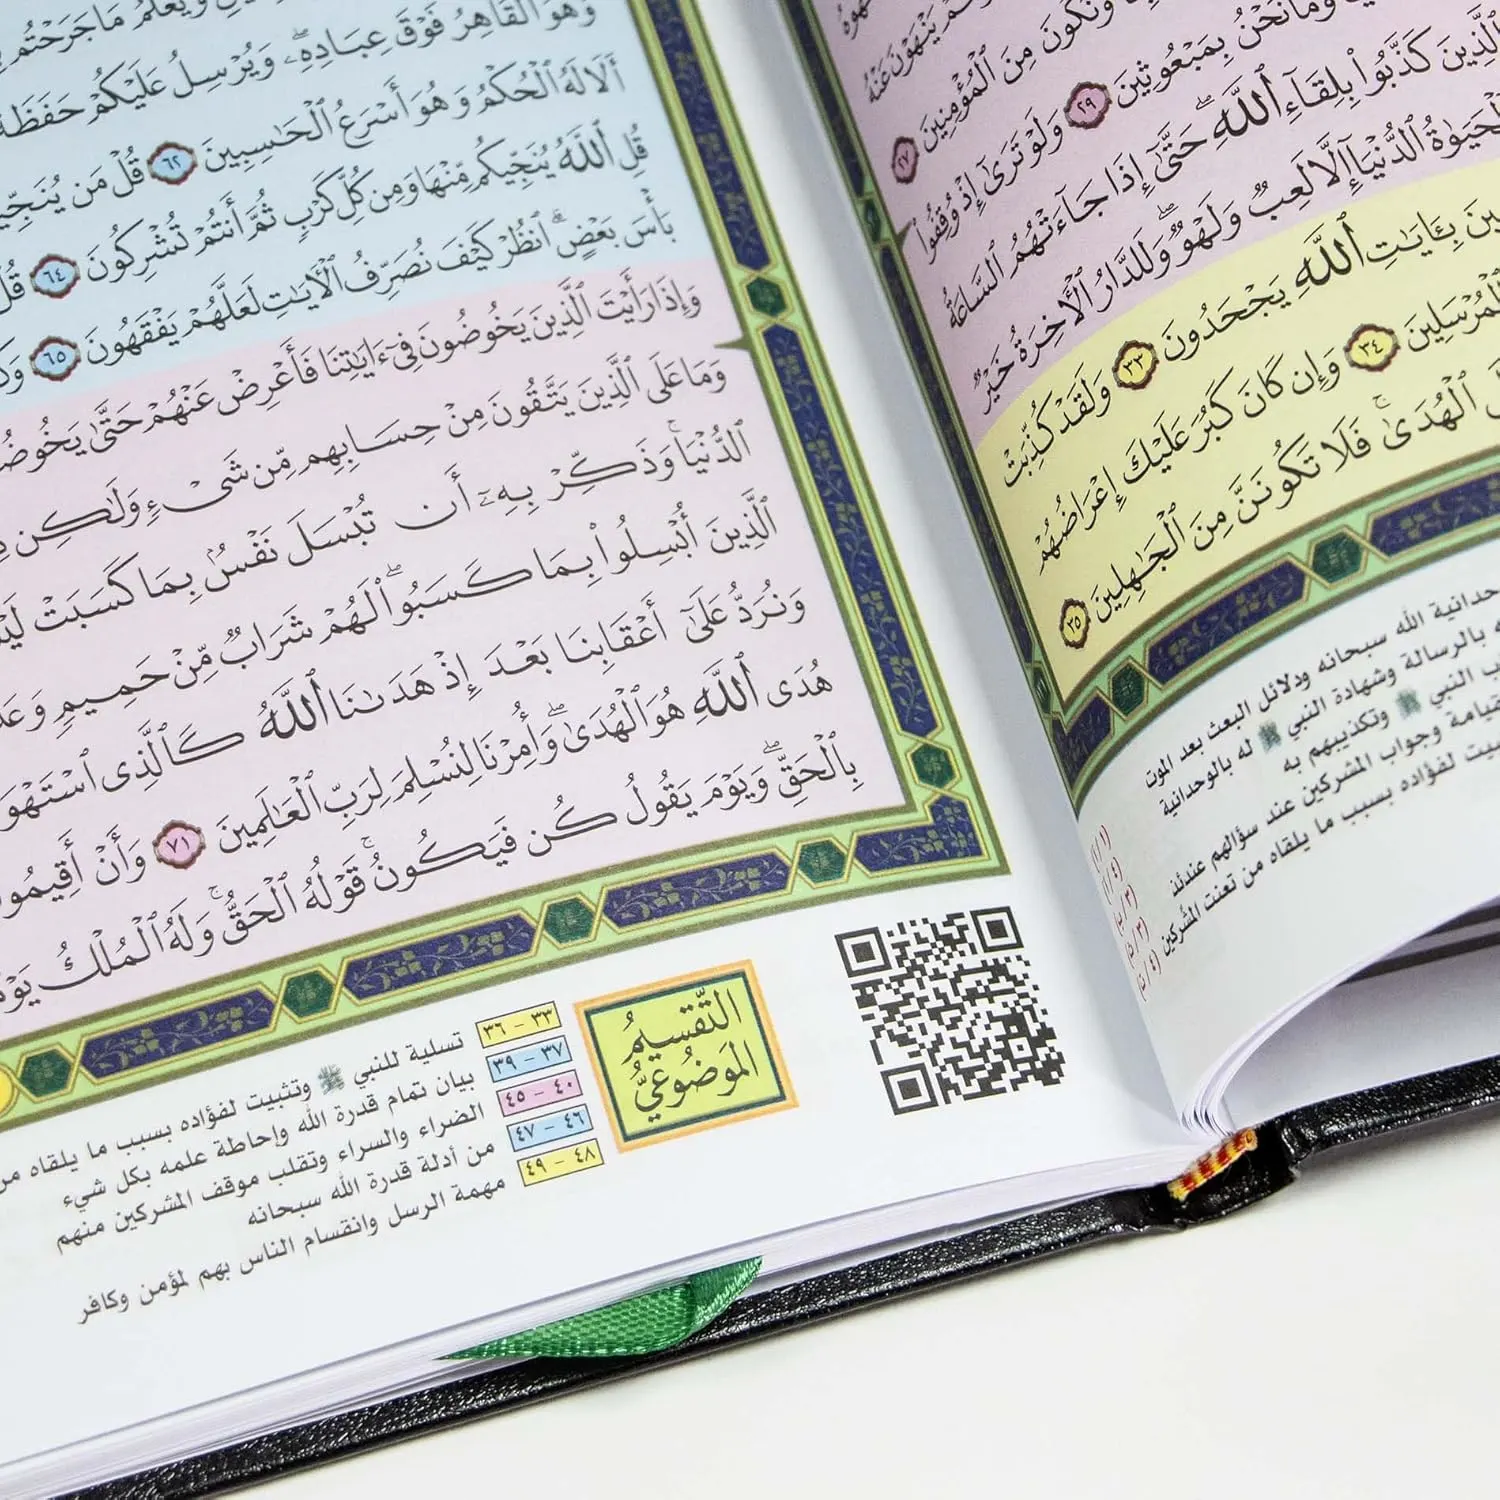 ـهُوهُ
ـمْ يَنْهَوْنَ عَنْهُ
وَنَكُونَ مِنَ ٱلْمُؤْمِنِينَ ٢٧
وَمَا نَحْنُ بِمَبْعُوثِينَ ٢٩ وَلَوْ تَرَىٰٓ إِذْ وُقِفُوا۟
ٱلَّذِينَ كَذَّبُوا۟ بِلِقَآءِ ٱللَّهِ ۖ حَتَّىٰٓ إِذَا جَآءَتْهُمُ ٱلسَّاعَةُ
ٱلْحَيَوٰةُ ٱلدُّنْيَآ إِلَّا لَعِبٌ وَلَهْوٌ ۖ وَلَلدَّارُ ٱلْـَٔاخِرَةُ خَيْرٌ
ـينَ بِـَٔايَـٰتِ ٱللَّهِ يَجْحَدُونَ ٣٣ وَلَقَدْ كُذِّبَتْ
ٱلْمُرْسَلِينَ ٣٤ وَإِن كَانَ كَبُرَ عَلَيْكَ إِعْرَاضُهُمْ
ٱلْهُدَىٰ ۚ فَلَا تَكُونَنَّ مِنَ ٱلْجَـٰهِلِينَ ٣٥
ـحدانية الله سبحانه ودلائل البعث بعد الموت
ـه بالرسالة وشهادة النبي ﷺ له بالوحدانية (١ / أ)
ـب النبي ﷺ وتكذيبهم به (٤ / أ)
ـقيامة وجواب المشركين عند سؤالهم عندئذ
ـبيت لفؤاده بسبب ما يلقاه من تعنت المشركين
وَهُوَ ٱلْقَاهِرُ فَوْقَ عِبَادِهِۦ ۖ وَيُرْسِلُ عَلَيْكُمْ حَفَظَةً
وَيَعْلَمُ مَا جَرَحْتُم
أَلَا لَهُ ٱلْحُكْمُ وَهُوَ أَسْرَعُ ٱلْحَـٰسِبِينَ ٦٢ قُلْ مَن يُنَجِّيـ
قُلِ ٱللَّهُ يُنَجِّيكُم مِّنْهَا وَمِن كُلِّ كَرْبٍ ثُمَّ أَنتُمْ تُشْرِكُونَ ٦٤ قُلْ
بَأْسَ بَعْضٍ ۗ ٱنظُرْ كَيْفَ نُصَرِّفُ ٱلْـَٔايَـٰتِ لَعَلَّهُمْ يَفْقَهُونَ ٦٥ وَكَـ
وَإِذَا رَأَيْتَ ٱلَّذِينَ يَخُوضُونَ فِىٓ ءَايَـٰتِنَا فَأَعْرِضْ عَنْهُمْ حَتَّىٰ يَخُوضُـ
وَمَا عَلَى ٱلَّذِينَ يَتَّقُونَ مِنْ حِسَابِهِم مِّن شَىْءٍ وَلَـٰكِن
ٱلدُّنْيَا ۚ وَذَكِّرْ بِهِۦٓ أَن تُبْسَلَ نَفْسٌۢ بِمَا كَسَبَتْ لَيْـ
ٱلَّذِينَ أُبْسِلُوا۟ بِمَا كَسَبُوا۟ ۖ لَهُمْ شَرَابٌ مِّنْ حَمِيمٍ وَعَذَ
وَنُرَدُّ عَلَىٰٓ أَعْقَابِنَا بَعْدَ إِذْ هَدَىٰنَا ٱللَّهُ كَٱلَّذِى ٱسْتَهْوَ
هُدَى ٱللَّهِ هُوَ ٱلْهُدَىٰ ۖ وَأُمِرْنَا لِنُسْلِمَ لِرَبِّ ٱلْعَـٰلَمِينَ ٧١ وَأَنْ أَقِيمُو
بِٱلْحَقِّ ۖ وَيَوْمَ يَقُولُ كُن فَيَكُونُ ۚ قَوْلُهُ ٱلْحَقُّ ۚ وَلَهُ ٱلْمُلْكُ يَوْمَ
التَّقْسِيمُ
المَوْضُوعِيُّ
٣٣ - ٣٦ تسلية للنبي ﷺ وتثبيت لفؤاده بسبب ما يلقاه من
٣٧ - ٣٩ بيان تمام قدرة الله وإحاطة علمه بكل شيء
٤٠ - ٤٥ الضراء والسراء وتقلب موقف المشركين منهم
٤٦ - ٤٧ من أدلة قدرة الله سبحانه
٤٨ - ٤٩ مهمة الرسل وانقسام الناس بهم لمؤمن وكافر